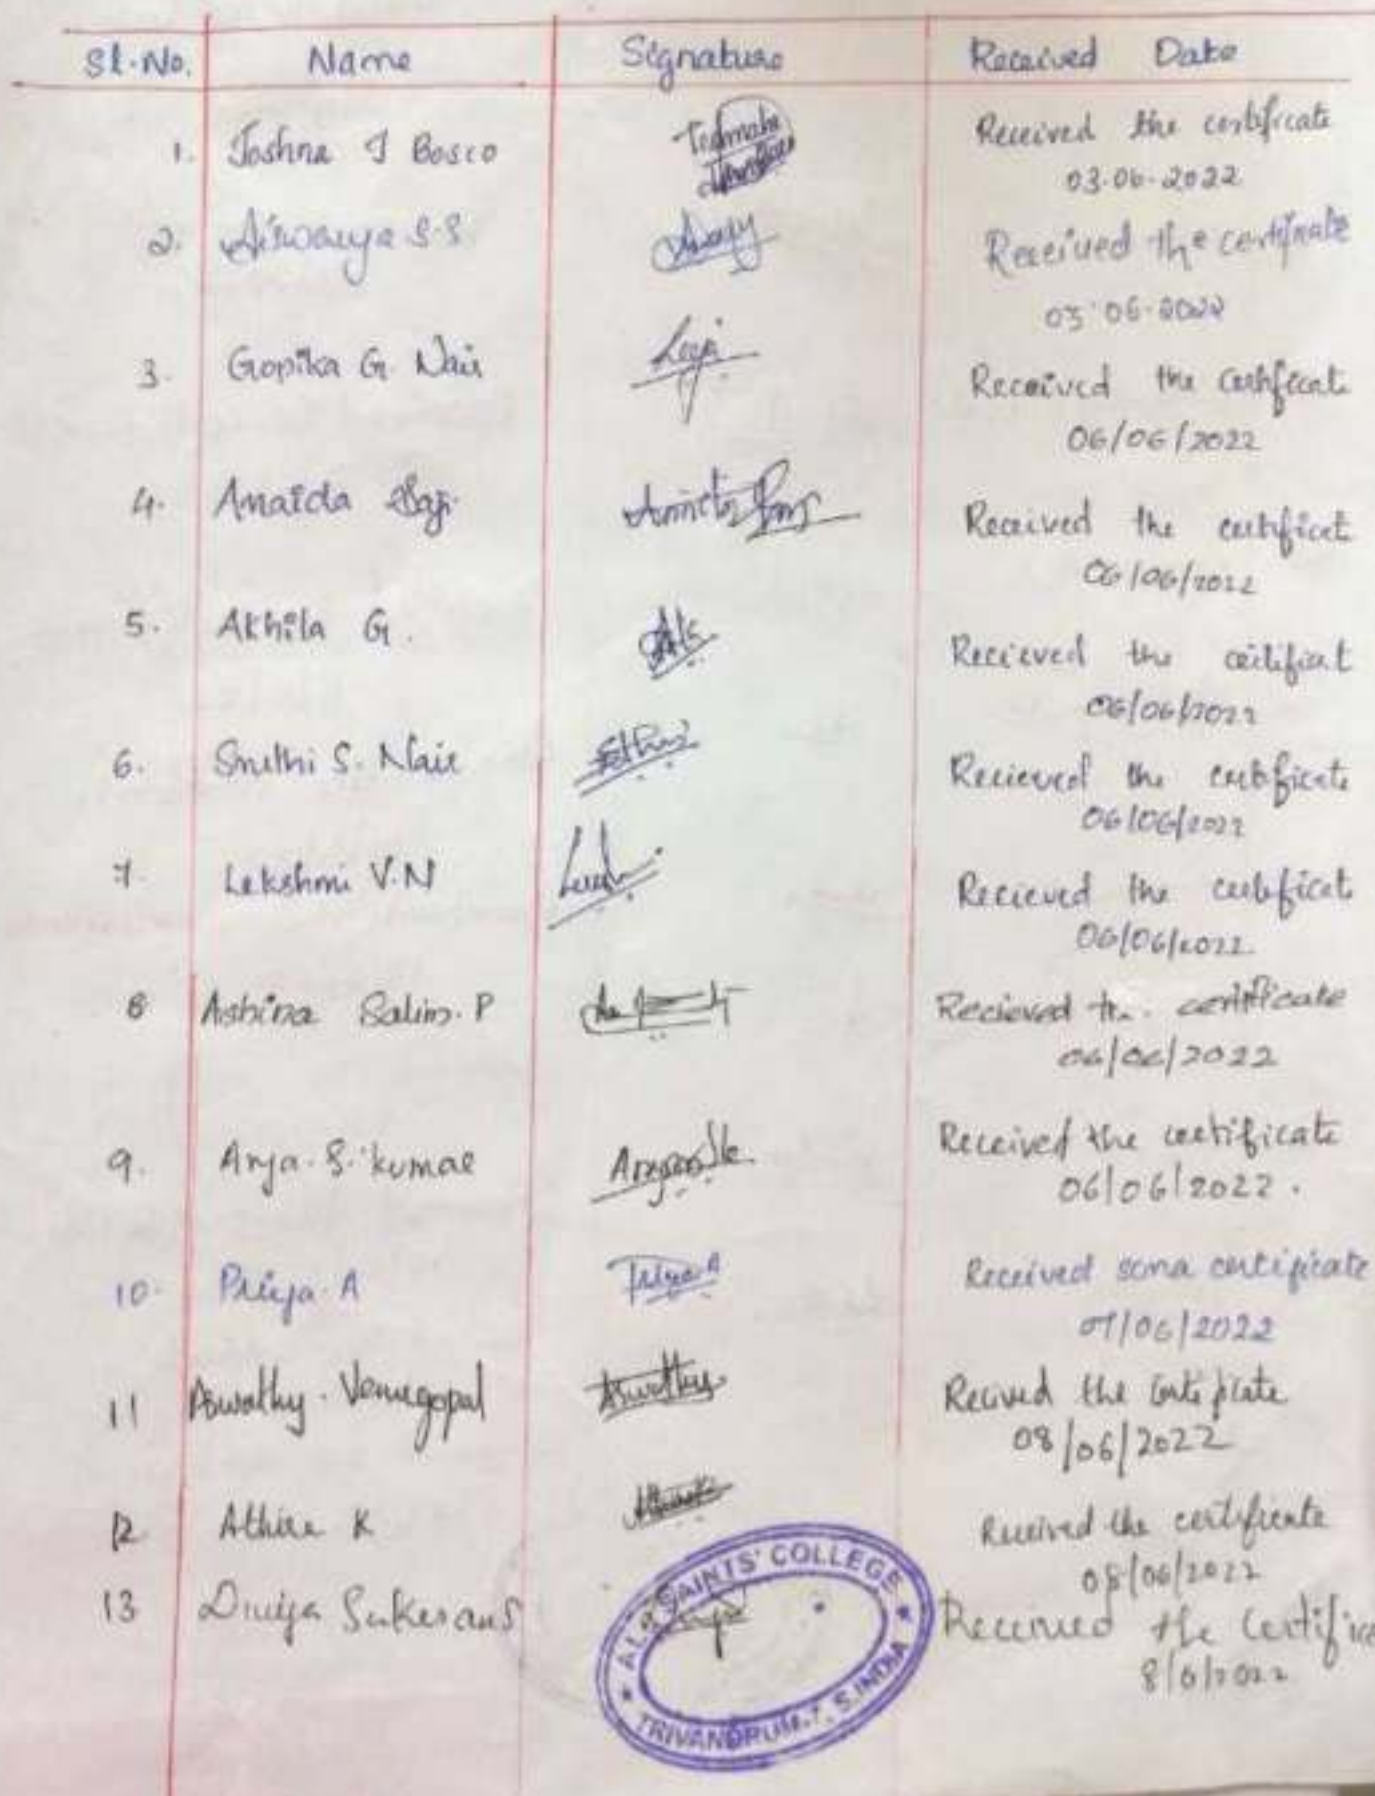 Sl.No. Name Signature Received Date
1. Joshna J Bosco Received the certificate
03.06.2022
2. Aiswarya S.S Received the certificate
03.06.2022
3. Gopika G. Nair Received the certificate
06/06/2022
4. Anaida Saji Received the certificate
06/06/2022
5. Akhila G. Recieved the certificat
06/06/2022
6. Sruthi S. Nair Recieved the certificate
06/06/2022
7. Lekshmi V.N Recieved the certificate
06/06/2022.
8 Ashina Salim. P Recieved the certificate
06/06/2022
9. Arya. S. kumar Received the certificate
06/06/2022.
10. Priya A Priya A Received certificate
07/06/2022
11 Aswathy. Venugopal Aswathy Recived the certificate
08/06/2022
12 Athira K Received the certificate
08/06/2022
13 Received the Certifica
8/6/2022
ALL SAINTS' COLLEGE
TRIVANDRUM.7, S.INDIA